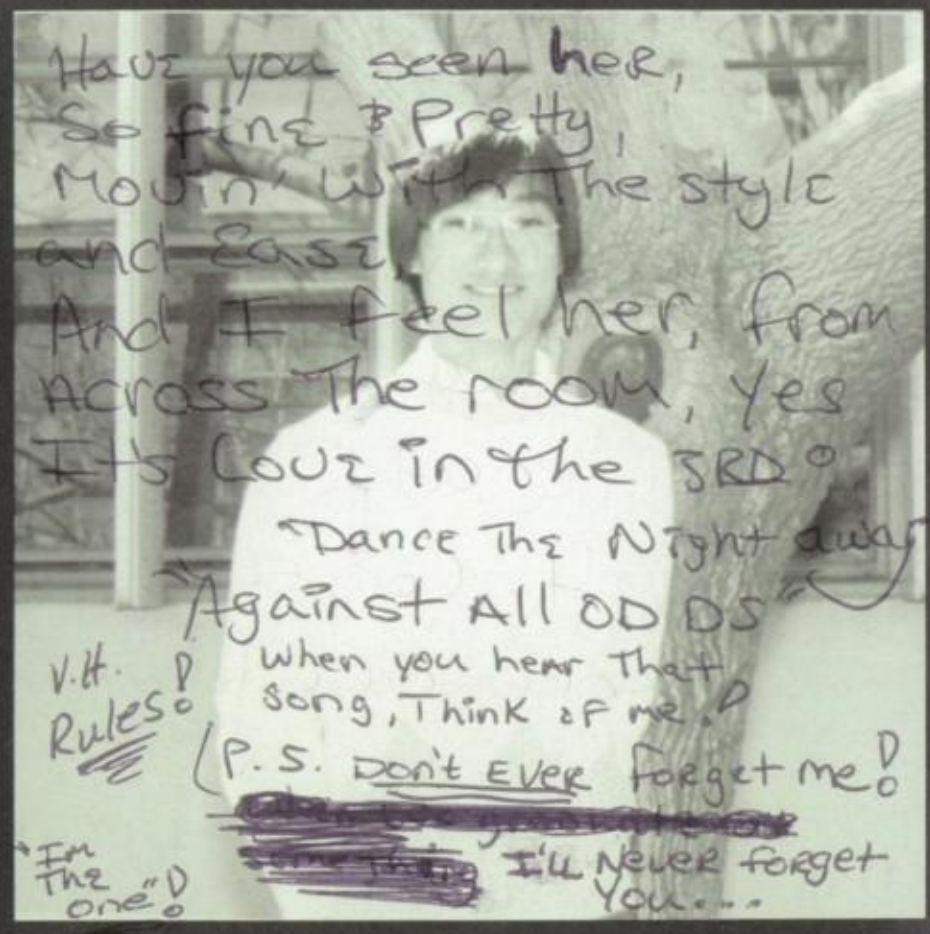 Have you seen her,
So fine & Pretty,
Movin' with The style
and Ease
And I feel her, from
Across The room, yes
It's Love in the 3RD!
"Dance The Night away"
"Against All ODDS"
When you hear That
song, Think of me!
V.H.
Rules!
(P.S. Don't EVER forget me!
I'll Never forget
You....
"I'm
The
one"!